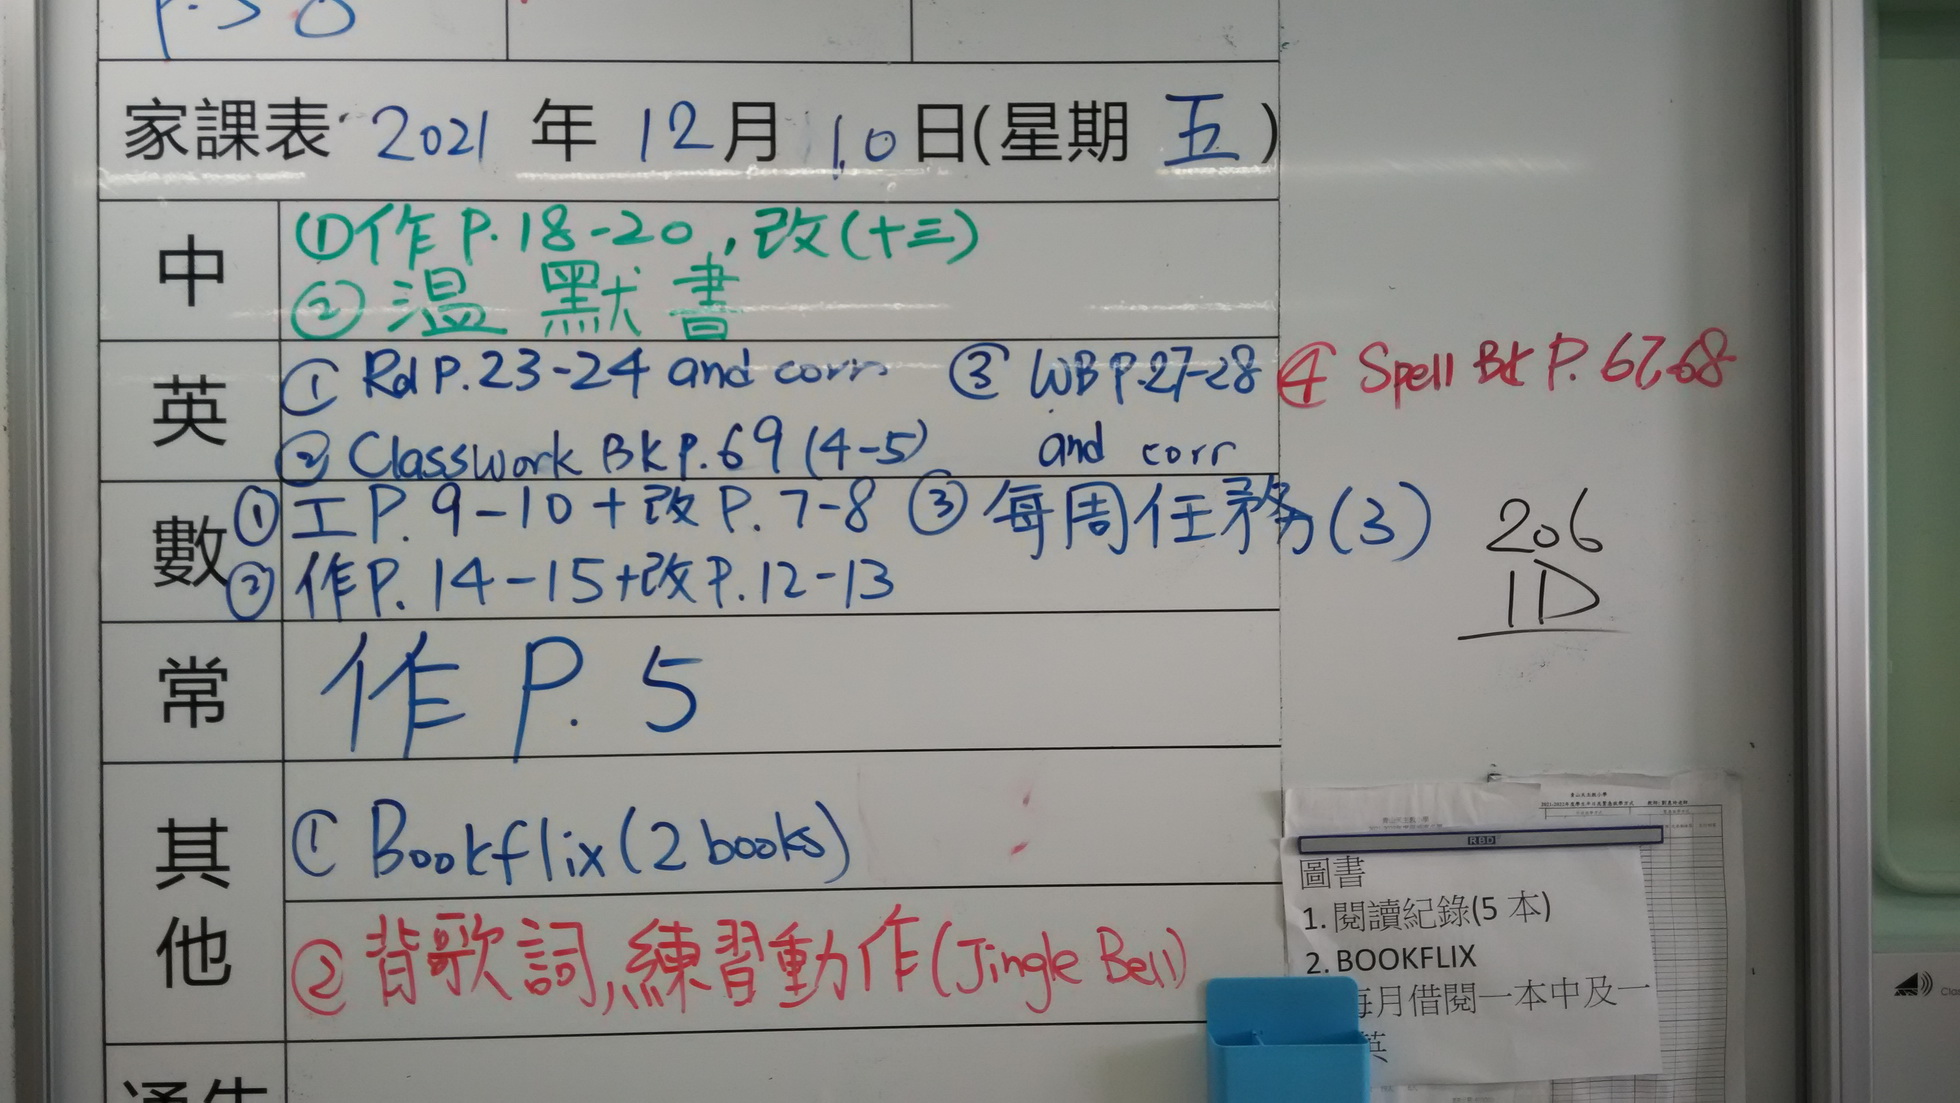 P.58
家課表 2021 年 12 月 10 日(星期 五)
中
①作 P.18-20,改(十三)
②溫 默書
英
① Rd P.23-24 and corr
② Classwork BK P.69 (4-5)
③ WB P.27-28
and corr
④ Spell Bk P. 67-68
數
① 工 P.9-10+改 P.7-8
② 作P.14-15+改P.12-13
③ 每周任務(3)
206
1D
常
作 P.5
其他
① Bookflix(2 books)
② 背歌詞,練習動作(Jingle Bell)
RBD
圖書
1. 閱讀紀錄(5 本)
2. BOOKFLIX
每月借閱一本中及一
英
通告